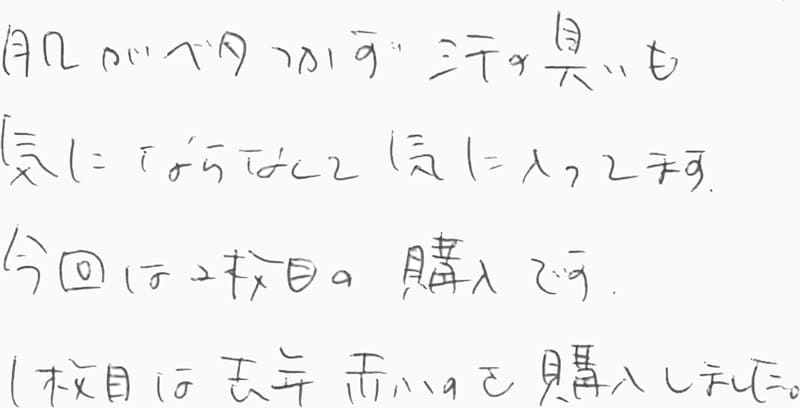 肌がベタつかず汗の臭いも
気にならなくて気に入ってます.
今回は2枚目の購入です.
1枚目は去年赤いのを購入しました。